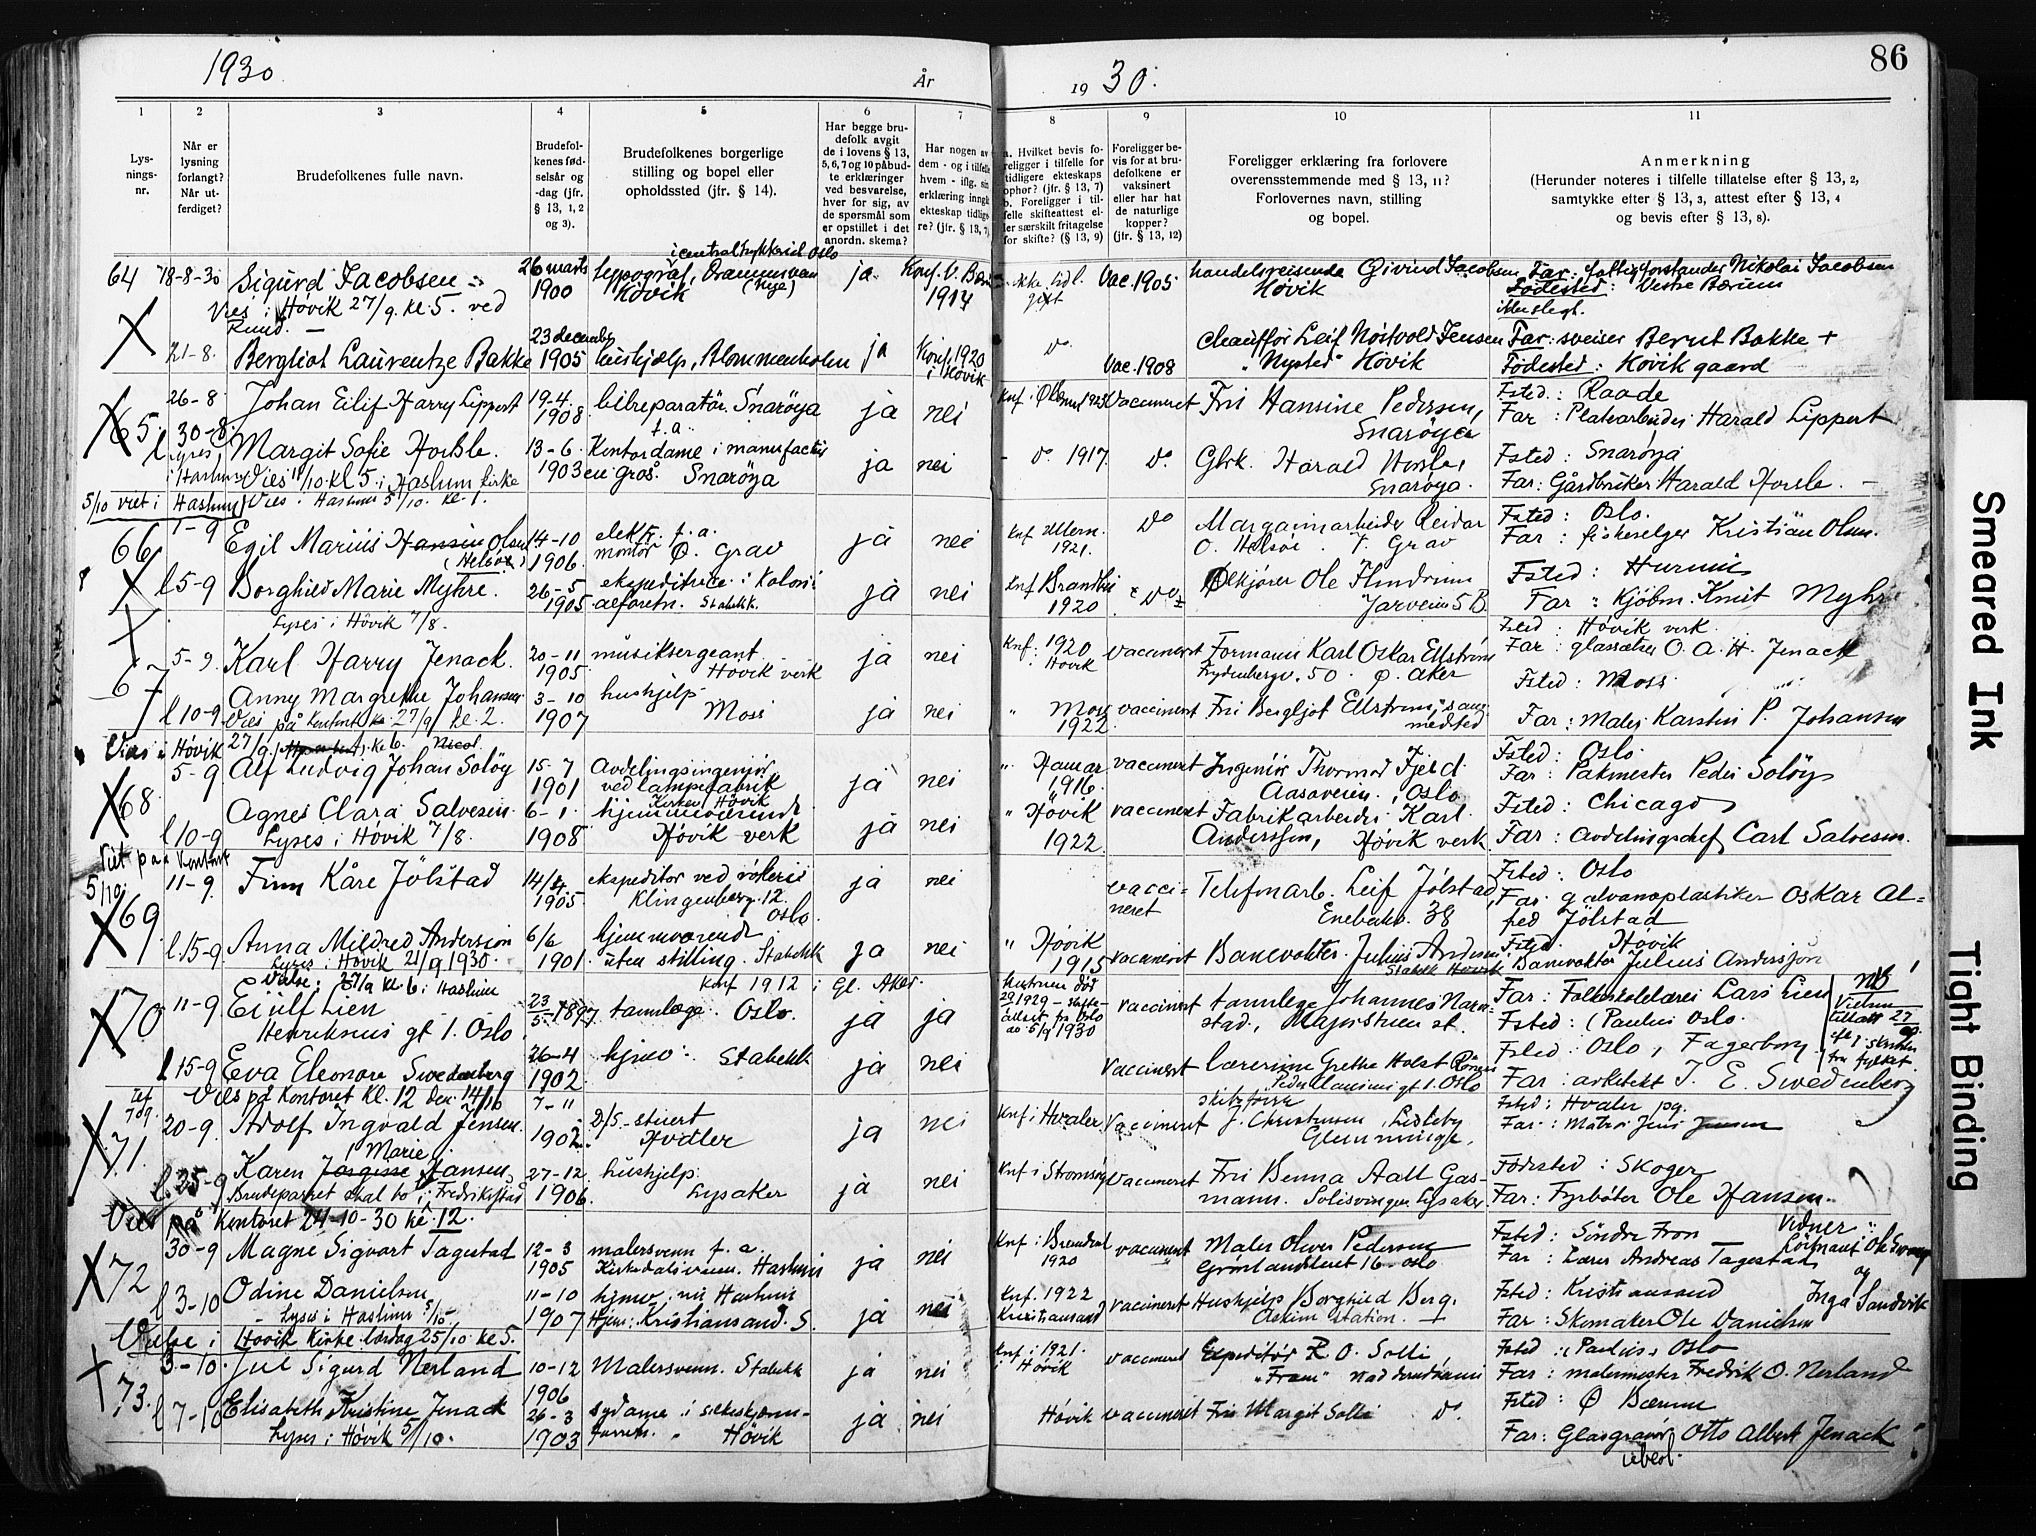 1930.
År
1930.
86
1
2
3
4
5
6
7
8
9
10
11
Lys-
nings-
nr.
Når er
lysning
forlangt?
Når ut-
ferdiget?
Brudefolkenes fulle navn.
Brudefol-
kenes fød-
selsår og
-dag (jfr.
§ 13, 1, 2
og 3).
Brudefolkenes borgerlige
stilling og bopel eller
opholdssted (jfr. § 14).
Har begge bru-
defolk avgit
de i lovens § 13,
5, 6, 7 og 10 påbud-
te erklæringer
ved besvarelse,
hver for sig, av
de spørsmål som
er opstillet i det
anordn. skema?
Har nogen av
dem - og i tilfelle
hvem - iflg. sin
erklæring inngk
ekteskap tidlig
re? (jfr. § 13, 7)
a. Hvilket bevis fo-
religger i tilfelle for
tidligere ekteskaps
ophør? (jfr. § 13, 7)
b. Foreligger i til-
felle skifteattest el-
ler særskilt fritagelse
for skifte? (§ 13, 9)
Foreligger be-
vis for at bru-
defolkene er
vaksinert
eller har hat
de naturlige
kopper?
(jfr. § 13, 12)
Foreligger erklæring fra forlovere
overensstemmende med § 13, 11?
Forlovernes navn, stilling
og bopel.
Anmerkning
(Herunder noteres i tilfelle tillatelse efter § 13, 2,
samtykke efter § 13, 3, attest efter § 13, 4
og bevis efter § 13, 8).
64 18-8-30 Sigurd Jacobsen 26 marts typograf, Drammensvein ja Konf. V. Bærum ikke tidl. Vac. 1905 handelsreisende Eivind Jacobsen Far: fattigforstander Nikolai Jacobsen
i centraltrykkeriet Oslo
1900 Høvik 1914 gift Høvik Fødested: Vestre Bærum
Vies i Høvik 27/9. kl. 5. ved
ikke slegt.
21-8. Bergliot Laurentze Bakke 23 december 1905 hushjælp, Blommenholm ja Konf. 1920 i Høvik do. Vac. 1908 Chauffør Leif Nøstvold Jensen "Nysted" Høvik Far: sveiser Bernt Bakke +
Fødested: Høvik gaard
65. 26-8 Johan Eilif Harry Lippert 19-4. 1908. bilreparatør. Snarøya ja nei Vaccineret Frk Hansine Pedersen, Snarøya Fsted.: Raade
Far: Platearbeider Harald Lippert
30-8. Margit Sofie Horsle. 13-6. 1903 Kontordame i manufactur en gros. Snarøya ja nei do 1917. do. Harald Horsle, Snarøya. Fsted: Snarøya
Far: Gårdbruker Harald Horsle.
Vies 11/10. kl. 5. i Haslum kirke
5/10 viet i Haslum Vies i Haslum 5/10. kl. 1.
66 1-9 Egil Marius Hansen Olsen 14-10 1906. elektr. f. a. montør Ø. Grav ja nei Knf Ullern. 1921. do Margarinarbeider Reidar O. Helsøe. V. Grav Fsted: Oslo.
Far: fiskeselger Kristian Olsen.
(Helsøe)
l 5-9 Borghild Marie Myhre. 26-5 1905 ekspeditrice i Koloni- alforetn. Stabekk. ja nei Knf Brandbu 1920 do Ole Jarveien 5B Fsted: Hurum
Far: Kjøbm. Knut Myhre
Lyses i Høvik 7/8.
67 5-9. Karl Harry Jenack. 20-11 1905. musiksergeant Høvik verk ja nei Knf: 1920 i Høvik vaccineret Formann Karl Oskar Ellstrøm Frydenbergv. 50. Ø. Aker Fsted: Høvik verk
Far: glassetser O. A. H. Jenack
l 10-9 Anny Margrethe Johansen 3-10 1907 hushjelp Moss ja nei " Moss 1922 vaccineret Frk Bergljot Ellstrøm, sammested Fsted: Moss
Far: Maler Karsten P. Johansen
Vies på kontoret 27/9 kl. 2.
Vies i Høvik 27/9. kl 6.
68. 5-9 Alf Ludvig Johan Soløy 15-7 1901 Avdelingsingeniør ved lampefabrik Kirkev. Høvik ja nei " Hamar 1916. vaccineret Ingeniør Thormod Fjeld Aasaveien, Oslo Fsted: Oslo
Far: Pakmester Peder Soløy
l 10-9 Agnes Clara Salvesen. 6-1. 1908. hjemmeværende Høvik verk ja nei " Høvik 1922. vaccineret Fabrikarbeider Karl Anderssen, Høvik verk Fsted: Chicago
Far: Avdelingschef Carl Salvesen.
Lyses i Høvik 7/8.
Viet paa Kontoret 5/10.
69 11-9. Finn Kåre Jølstad 14/4. 1905. ekspeditor ved røkeri Klingenberg. 12. Oslo. ja nei vacci- neret Telefonarb. Leif Jølstad, Enebakv. 38 Fsted: Oslo
Far. galvanoplastiker Oskar Al- fred Jølstad
l. 15-9 Anna Mildred Anderssen 6/6 1901. hjemmeværende uten stilling. Stabekk ja nei " Høvik 1915 vaccineret Banevokter Julius Anderssen Stabekk Høvik Fsted. Høvik
Banevokter Julius Anderssen
Lyses i Høvik 21/9 1930.
Vielse: 27/9 kl. 6 i Haslum Knf 1912 i Gl. Aker.
70 11-9 Eiulf Lien 23/5-1897 tannlæge. Oslo. ja ja hustruen død 1929 - skifte- attest fra Oslo do 5/9 1930 vaccineret tannlege Johannes Narve- stad, Majorstuen st. Far: Folkeskolelærer Lars Lien
Fsted: (Paulus Oslo.
Henriksens gt 1. Oslo
NB! Vielsen tillatt 27/9
l 15-9 Eva Eleonore Swedenborg 26-4 1902. hjemv. Stabekk ja nei Vaccineret Lærerinne Grethe Holst Peder Claussens gt 1. Oslo Fsted: Oslo, Fagerborg
Far: arkitekt J. E. Swedenborg
Vies på kontoret Kl. 12 den 14/10
71. 20-9. Adolf Ingvald Jensen. 7-11 1902. D/S.-stuert Hvaler ja nei Knf i Hvaler Vaccineret J. Christensen, Lisleby Glemminge. Fsted: Hvaler pg.
Far: Matros Jens Jensen
l 25-9 Karen Marie Hansen 27-12. 1906. hushjelp. Lysaker ja nei Knf i Strømsø Vaccineret Frk Benna Aall Gas- mann. Solisvingen Lysaker Fødested: Skoger
Far: Fyrbøter Ole Hansen.
Brudeparet skal bo i Fredrikstad
Vies på Kontoret 24-10-30 kl. 12.
72 30-9 Magne Sigvart Tagestad 12-3 1905 malersvenn f. a. Kirkedalsveien. Haslum ja nei 1920 vaccineret Maler Oliver Pedersen Grønlandsleret 16-Oslo Fsted: Søndre Fron
Far: Lærer Andreas Tagestad
Vidner: Løitnant Ole og Inga Sandvik
l 3-10 Odine Danielsen 11-10 1907 hjemv. nu Haslum Hjem: Kristiansand. S. ja nei Knf. 1922 Kristiansand vaccineret Hushjelp Borghild Berg. Askim station. Fsted: Kristiansand
Far: Skomaker Ole Danielsen
Lyses i Haslum 5/10-
Vielse i Høvik Kirke lørdag 25/10. kl. 5.
73. 3-10. Sigurd Nerland 10-12 1906 Malersvenn. Stabekk ja nei Knf i 1921. i Høvik vaccineret Ekspeditør R. O. Solli, "Fram" Fsted: (Paulus. Oslo
Far: malermester Fredrik O. Nerland
l 7-10 Elisabeth Kristine Jenack 26-3 1903 sydame i silkeskjerm- forretn. Høvik ja nei Høvik vaccineret Frk Margit Solli do. Fsted: Ø Bærum
Far: Glasgravør Otto Albert Jenack
ubesl.
Lyses i Høvik 5/10.
Smeared Ink
Tight Binding